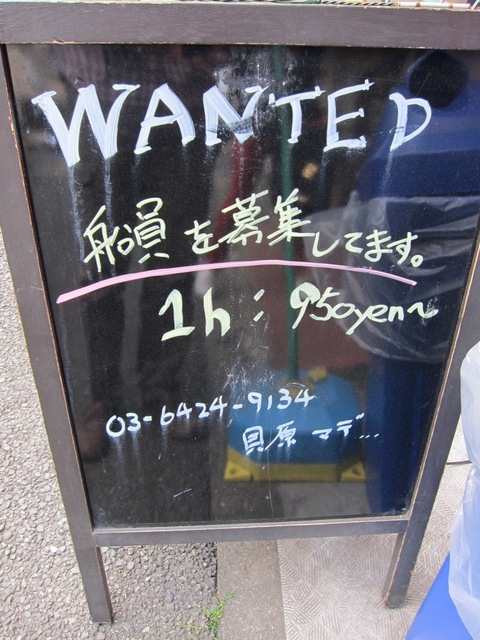 WANTED
船員を募集してます。
1h:950yen~
03-6424-9134
貝原マデ...